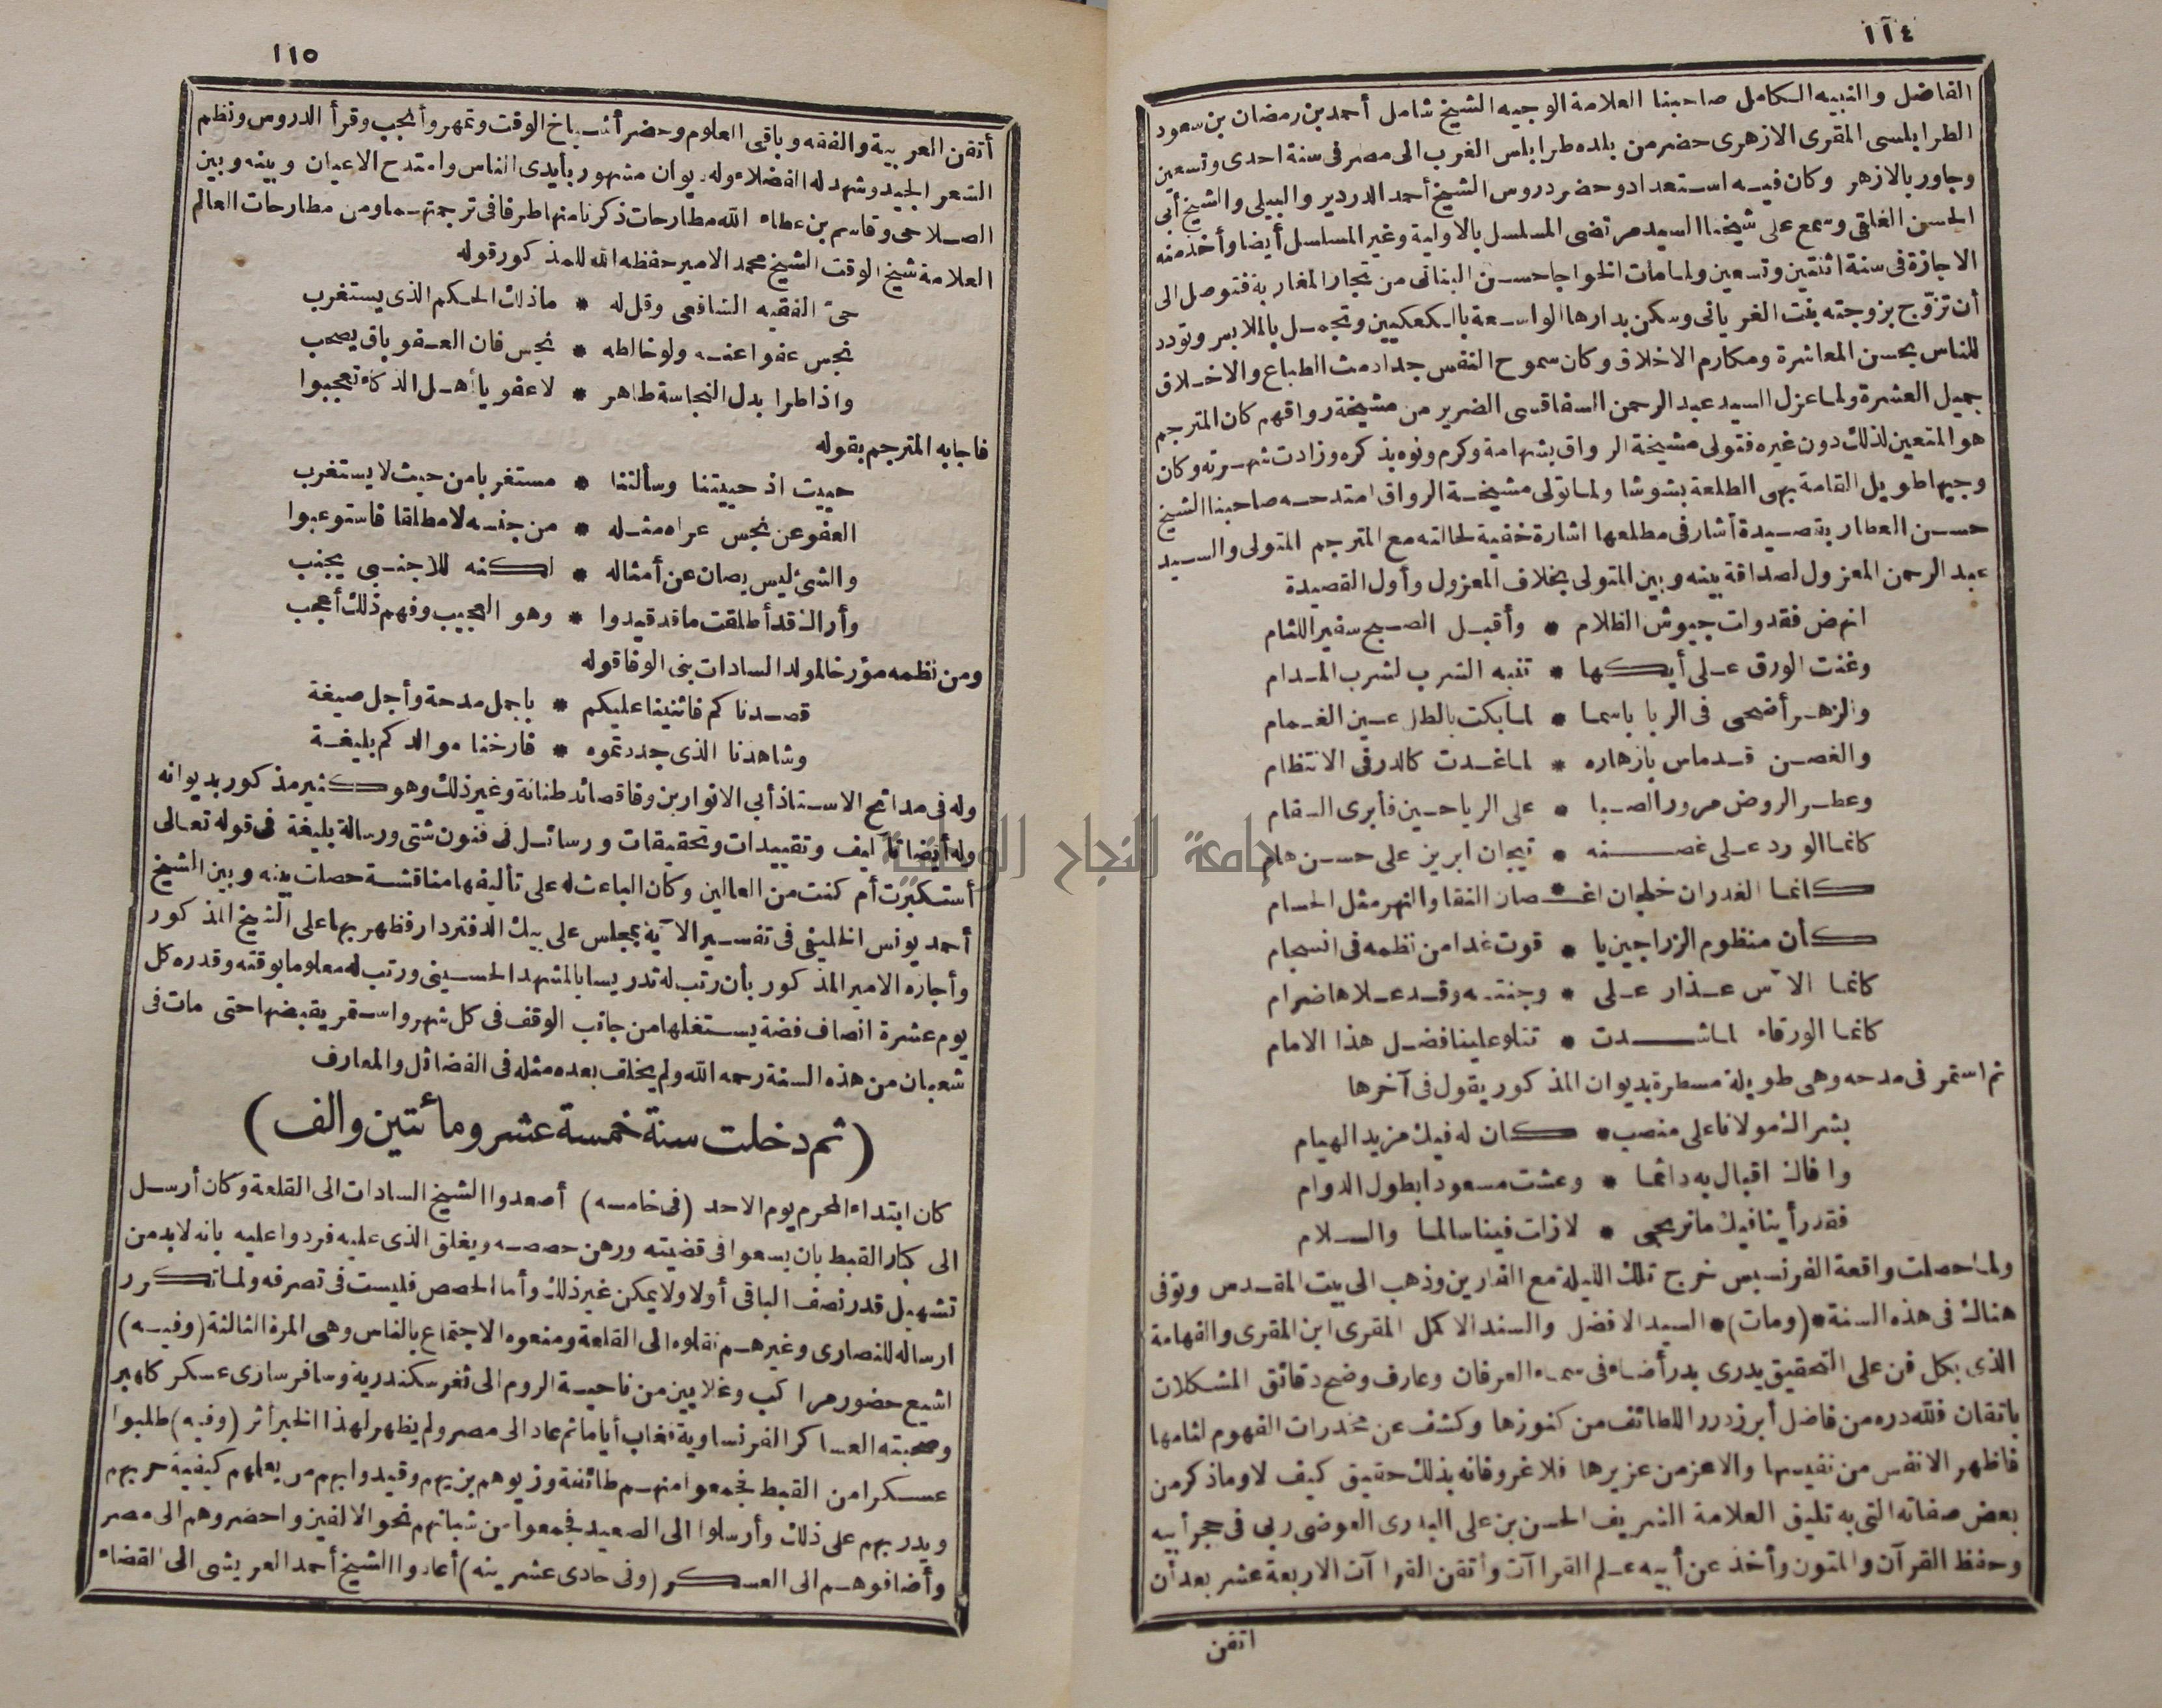 ١١٤
الفاضل والنبيه الكامل صاحبنا العلامة الوجيه الشيخ شامل أحمد بن رمضان بن سعود
الطرابلسى المقرى الازهرى حضر من بلده طرابلس الغرب الى مصر فى سنة احدى وتسعين
وجاور بالازهر وكان فيه استعداد وحضر دروس الشيخ أحمد الدردير والبيلى والشيخ أبى
الحسن الغلقى وسمع على شيخنا السيد مرتضى المسلسل بالاولية وغير المسلسل أيضا وأخذ منه
الاجازة فى سنة اثنتين وتسعين ولما مات الخواجا حسن البنانى من تجار المغاربة فتوصل الى
أن تزوّج بزوجته بنت الغريانى وسكن بدارها الواسعة بالكعكيين وتجمل بالملابس وتودد
للناس بحسن المعاشرة ومكارم الاخلاق وكان سموح النفس جدا دمث الطباع والاخلاق
جميل العشرة ولما عزل السيد عبد الرحمن السفاقسى الضرير من مشيخة رواقهم كان المترجم
هو المتعين لذلك دون غيره فتولى مشيخة الرواق بشهامة وكرم ونوه بذكره وزادت شهرته وكان
وجيها طويل القامة بهى الطلعة بشوشا ولما تولى مشيخة الرواق امتدحه صاحبنا الشيخ
حسن العطار بقصيدة أشار فى مطلعها اشارة خفية لحالته مع المترجم المتولى والسيد
عبد الرحمن المعزول لصداقة بينه وبين المتولى بخلاف المعزول وأول القصيدة
انهض فقد ولت جيوش الظلام * وأقبل الصبح سفير اللثام
وغنت الورق على أيكها * تنبه الشرب لشرب المدام
والزهر أضحى فى الربا باسما * لما بكت بالطل عين الغمام
والغصن قد ماس بازهاره * لما غدت كالدر فى الانتظام
وعطر الروض مرور الصبا * على الرياحين فأبرى السقام
كانما الورد على غصنه * تيجان ابريز على حسن هام
كانما الغدران خلجان اغصان النقا والنهر مثل الحسام
كأن منظوم الزراجين يا * قوت غدا من نظمه فى انسجام
كانما الآس عذار على * وجنته وقد علاها ضرام
كانما الورقاء لما شدت * تتلو علينا فضل هذا الامام
ثم استمر فى مدحه وهى طويلة مسطرة بديوان المذكور يقول فى آخرها
بشراك مولانا على منصب * كان له فيك مزيد الهيام
وافاك اقبال به دائما * وعشت مسعودا بطول الدوام
فقد رأينا فيك ما نرتجى * لازلت فينا سالما والسلام
ولما حصلت واقعة الفرنسيس خرج تلك الليلة مع الفارين وذهب الى بيت المقدس وتوفى
هناك فى هذه السنة * (ومات) * السيد الافضل والسند الاكمل المقرى ابن المقرى والفهامة
الذى بكل فن على التحقيق يدرى بدر أضاء فى سماء العرفان وعارف وضح دقائق المشكلات
باتقان فلله دره من فاضل أبرز درر اللطائف من كنوزها وكشف عن مخدرات الفهوم لثامها
فاظهر الانفس من نفيسها والاعز من عزيزها فلا غرو فانه بذلك حقيق كيف لا وما ذكر من
بعض صفاته التى به تليق العلامة الشريف الحسن بن على البدرى العوضى ربى فى حجر أبيه
وحفظ القرآن والمتون وأخذ عن أبيه علم القراآت وأتقن القراآت الاربعة عشر بعد أن
اتقن
١١٥
أتقن العربية والفقه وباقى العلوم وحضر أشياخ الوقت وتمهر وأنجب وقرأ الدروس ونظم
الشعر الجيد وشهد له الفضلاء وله ديوان مشهور بأيدى الناس وامتدح الاعيان وبينه وبين
الصلاحى وقاسم بن عطاء الله مطارحات ذكرنا منها طرفا فى ترجمتهما ومن مطارحات العالم
العلامة شيخ الوقت الشيخ محمد الامير حفظه الله للمذكور قوله
حىّ الفقيه الشافعى وقل له * ماذلك الحكم الذى يستغرب
نجس عفوا عنه ولو خالطه * نجس فان العفو باق يصحب
واذا طرا بدل النجاسة طاهر * لا عفو يا أهل الذكاء تعجبوا
فاجابه المترجم بقوله
حييت اذ حييتنا وسألتنا * مستغربا من حيث لا يستغرب
العفو عن نجس عراه مثله * من جنسه لا مطلقا فاستوعبوا
والشئ ليس يصان عن أمثاله * لكنه للاجنبى يجنب
وأراك قد أطلقت ما قد قيدوا * وهو العجيب وفهم ذلك أعجب
ومن نظمه مؤرخا لمولد السادات بنى الوفا قوله
قصدنا كم فائنينا عليكم * باجمل مدحة وأجل صيغة
وشاهدنا الذى جددتموه * فارخنا موالدكم بليغة
وله فى مدائح الاستاذ أبى الانوار بن وفا قصائد طنانة وغير ذلك وهو كثير مذكور بديوانه
وله أيضا تآليف وتقييدات وتحقيقات ورسائل فى فنون شتى ورسالة بليغة فى قوله تعالى
أستكبرت أم كنت من العالين وكان الباعث له على تأليفها مناقشة حصلت بينه وبين الشيخ
أحمد يونس الخليفى فى تفسير الآية بمجلس على بيك الدفتردار فظهر بها على الشيخ المذكور
وأجازه الامير المذكور بأن رتب له تدريسا بالمشهد الحسينى ورتب له معلوما بوقته وقدره كل
يوم عشرة انصاف فضة يستغلها من جانب الوقف فى كل شهر واستمر يقبضها حتى مات فى
شعبان من هذه السنة رحمه الله ولم يخلف بعده مثله فى الفضائل والمعارف
(ثم دخلت سنة خمسة عشر ومائتين والف)
كان ابتداء المحرم يوم الاحد (فى خامسه) أصعدوا الشيخ السادات الى القلعة وكان أرسل
الى كبار القبط بان يسعوا فى قضيته ورهن حصصه ويغلق الذى عليه فردوا عليه بانه لابد من
تشهيل قدر نصف الباقى أولا ولا يمكن غير ذلك وأما الحصص فليست فى تصرفه ولما تكرر
ارساله للنصارى وغيرهم نقلوه الى القلعة ومنعوه الاجتماع بالناس وهى المرة الثالثة (وفيه)
اشيع حضور مراكب وغلايين من ناحية الروم الى ثغر سكندرية وسافر سارى عسكر كلهبر
وصحبته العساكر الفرنساوية فغاب أياما ثم عاد الى مصر ولم يظهر لهذا الخبر أثر (وفيه) طلبوا
عسكرا من القبط فجمعوا منهم طائفة وزيوهم بزيهم وقيدوا بهم من يعلمهم كيفية حربهم
ويدربهم على ذلك وأرسلوا الى الصعيد فجمعوا من شبانهم نحو الالفين واحضروهم الى مصر
وأضافوهم الى العسكر (وفى حادى عشرينه) أعادوا الشيخ أحمد العريشى الى القضاء
جامعة النجاح الوطنية